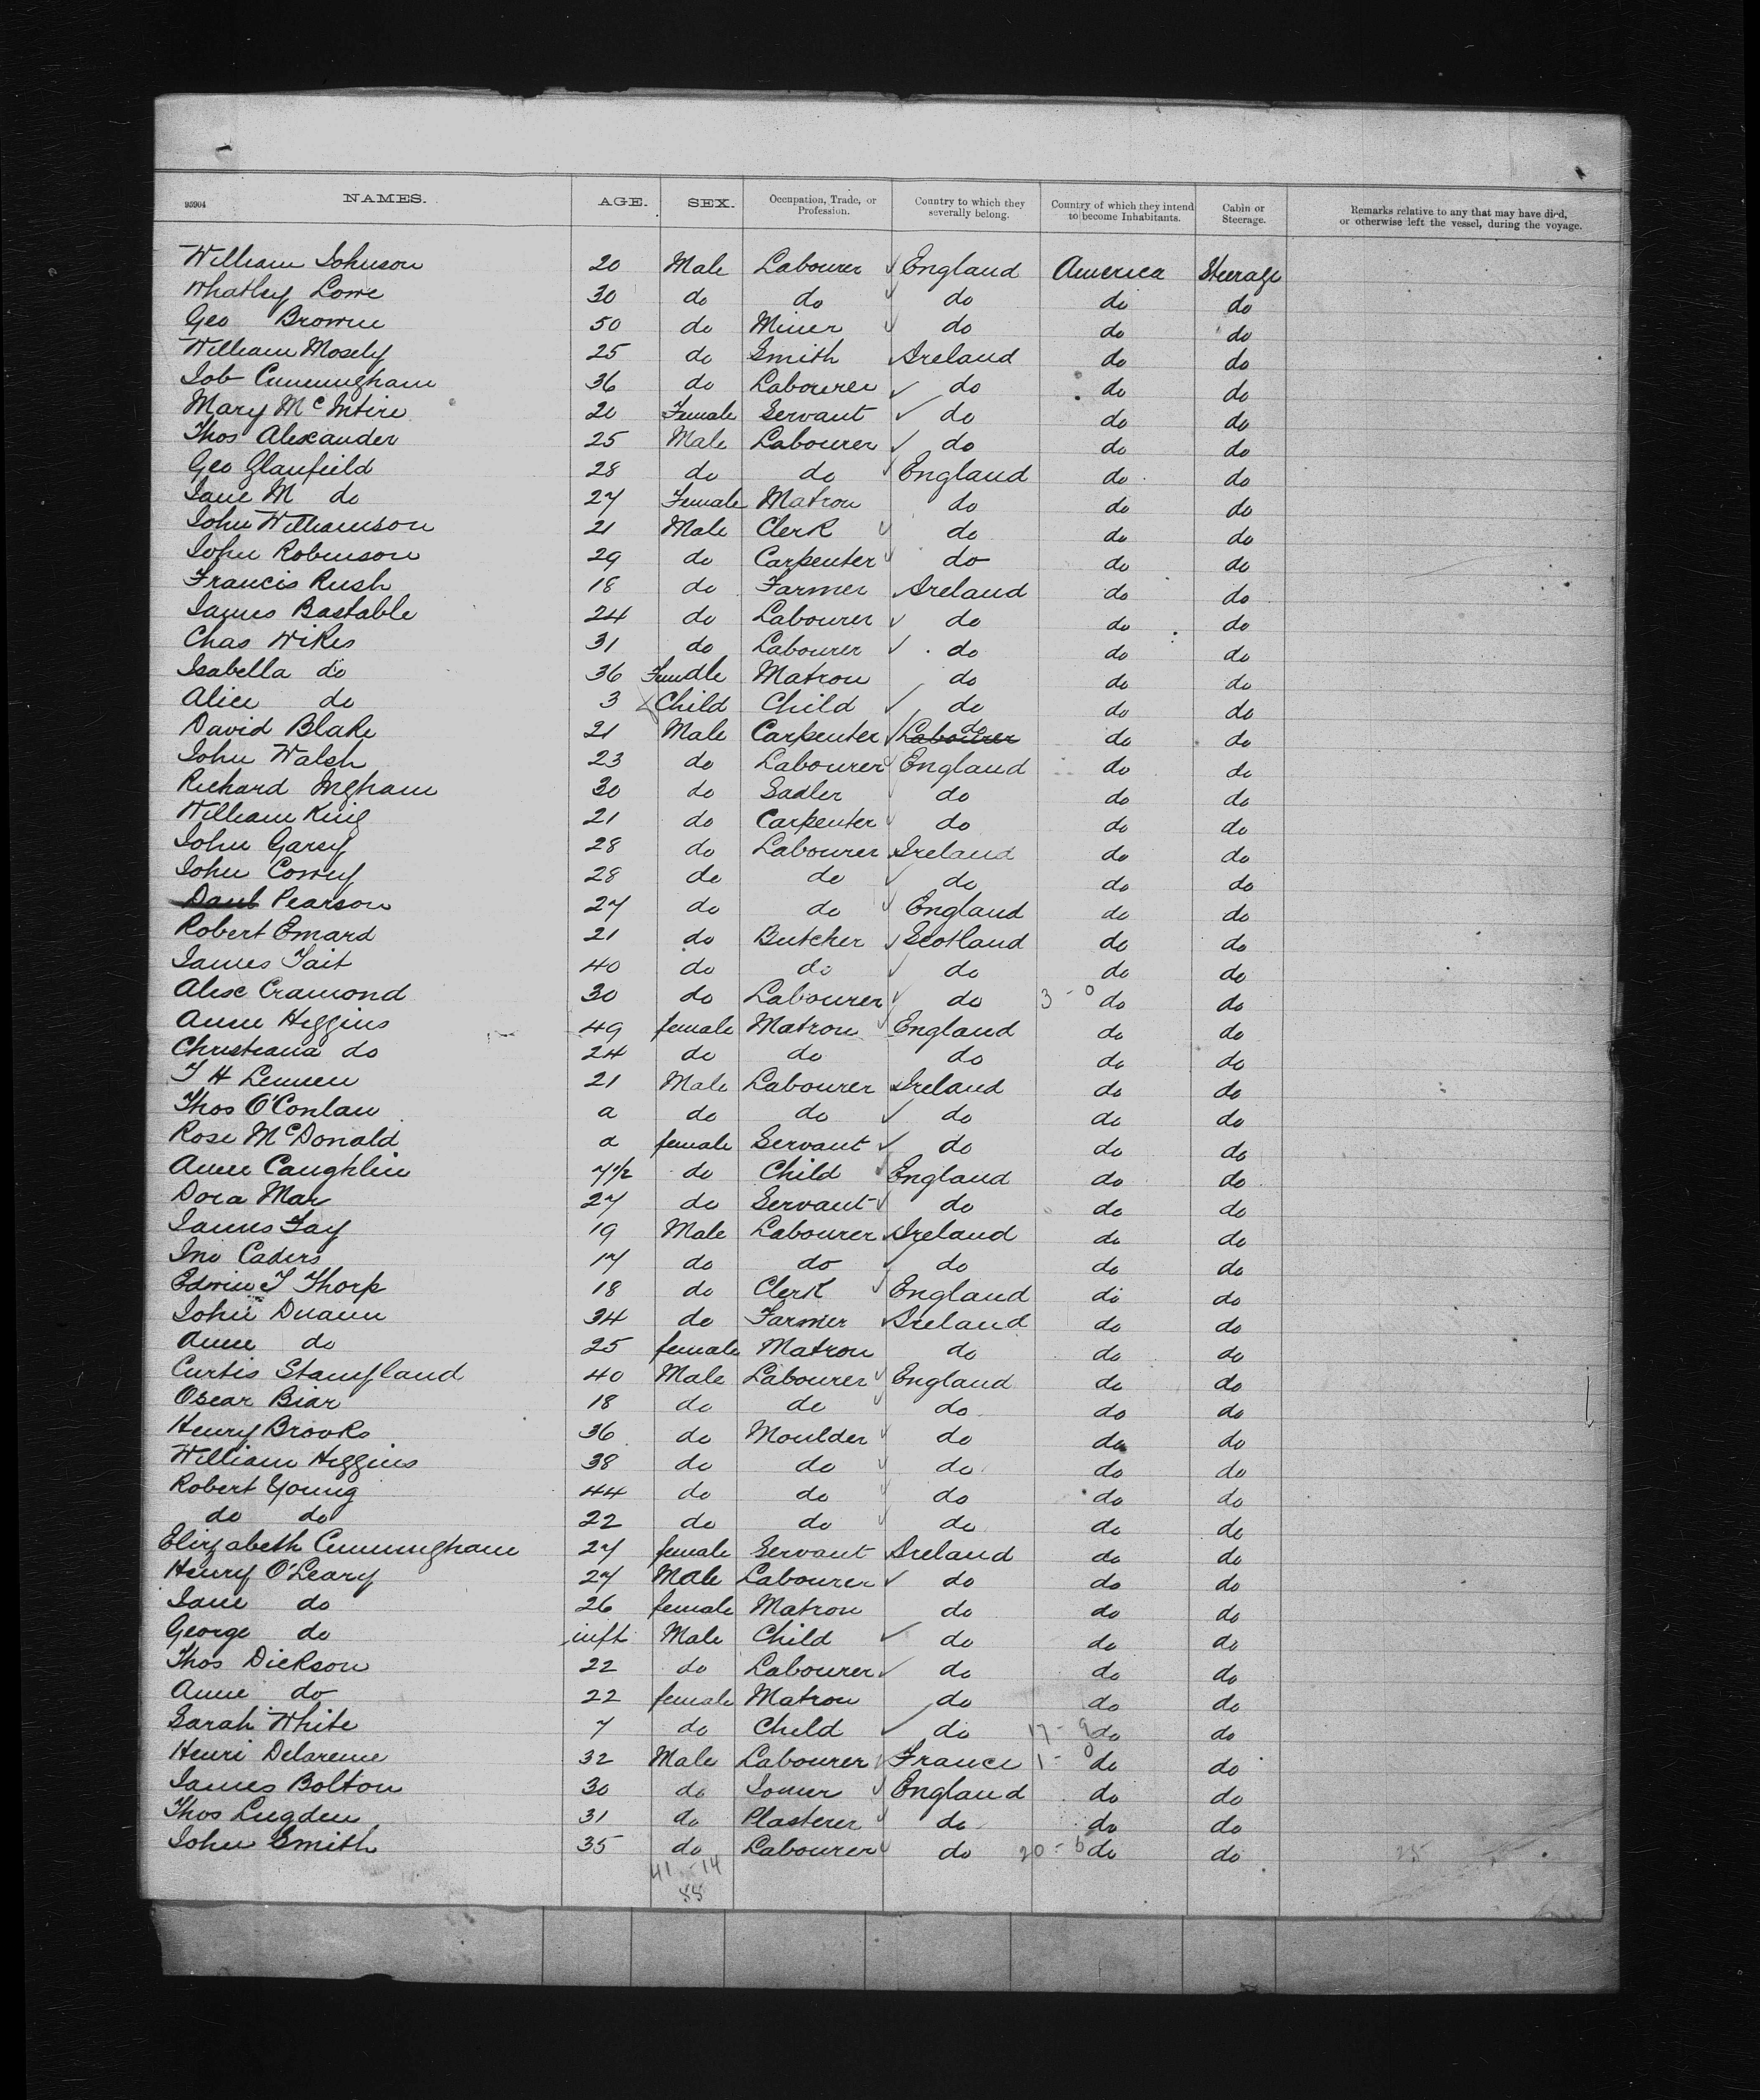 95904 NAMES. AGE. SEX. Occupation, Trade, or Profession. Country to which they severally belong. Country of which they intend to become Inhabitants. Cabin or Steerage. Remarks relative to any that may have died, or otherwise left the vessel, during the voyage.
William Johnson 20 Male Labourer England America Steerage
Whatley Lowe 30 do do do do do
Geo Browne 50 do Miner do do do
William Mosely 25 do Smith Ireland do do
Job Cunningham 36 do Labourer do do do
Mary McIntire 20 Female Servant do do do
Thos Alexander 25 Male Labourer do do do
Geo Glanfield 28 do do England do do
Jane M do 27 Female Matron do do do
John Williamson 21 Male Clerk do do do
John Robinson 29 do Carpenter do do do
Francis Rush 18 do Farmer Ireland do do
James Bastable 24 do Labourer do do do
Chas Wikes 31 do Labourer do do do
Isabella do 36 Female Matron do do do
Alice do 3 Child Child do do do
David Blake 21 Male Carpenter Labourer do do do
John Walsh 23 do Labourer England do do
Richard Ingham 30 do Sadler do do do
William King 21 do Carpenter do do do
John Garsy 28 do Labourer Ireland do do
John Correy 28 do do do do do
Danl Pearson 27 do do England do do
Robert Emard 21 do Butcher Scotland do do
James Tait 40 do do do do do
Alex Cramond 30 do Labourer do 3-0 do do
Anne Higgins 49 female Matron England do do
Christiana do 24 do do do do do
T H Lennen 21 Male Labourer Ireland do do
Thos O'Conlan a do do do do do
Rose McDonald a female Servant do do do
Anne Caughlin 7½ do Child England do do
Dora Mar 27 do Servant do do do
James Fay 19 Male Labourer Ireland do do
Jno Caders 17 do do do do do
Edwin T Thorp 18 do Clerk England do do
John Duann 34 do Farmer Ireland do do
Anne do 25 female Matron do do do
Curtis Stampland 40 Male Labourer England do do
Oscar Biar 18 do do do do do
Henry Brooks 36 do Moulder do do do
William Higgins 38 do do do do do
Robert Young 44 do do do do do
do do 22 do do do do do
Elizabeth Cunningham 27 female Servant Ireland do do
Henry O'Leary 27 Male Labourer do do do
Jane do 26 female Matron do do do
George do inft Male Child do do do
Thos Dickson 22 do Labourer do do do
Anne do 22 female Matron do do do
Sarah White 7 do Child do 17-9 do do
Henri Delarenne 32 Male Labourer France 1-0 do do
James Bolton 30 do Joiner England do do
Thos Lugden 31 do Plasterer do do do
John Smith 35 do Labourer do 20-5 do do
41-14
55